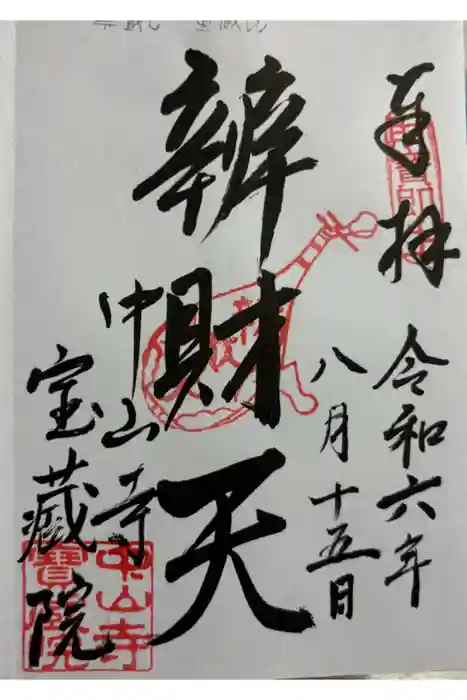 奉拝
令和六年
八月十五日
辨財天
中山寺
宝蔵院
中山寺
寶蔵院